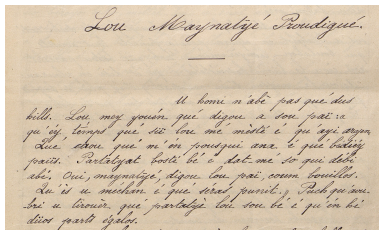 Lou Maynatyé Proudigué.
U homi n'abè pas qué dus
hills. Lou mey youén qué digou a soun paï: «
qu'éy témps qué sii lou mé mèsté é qu'ayi argen,
Qué caou que m'en pousqui ana é qué badiey
païs. Partatyat bosté bé é dat-me so qui debi
abé. Oui, maynatyé, digou lou paï, coum bouilles.
Qu'és u mechan é qué séras punit.» Puch qu'aou-
bri u tirouèr, qué partatyè lou soun bé é qu'én hé
düos parts égalos.